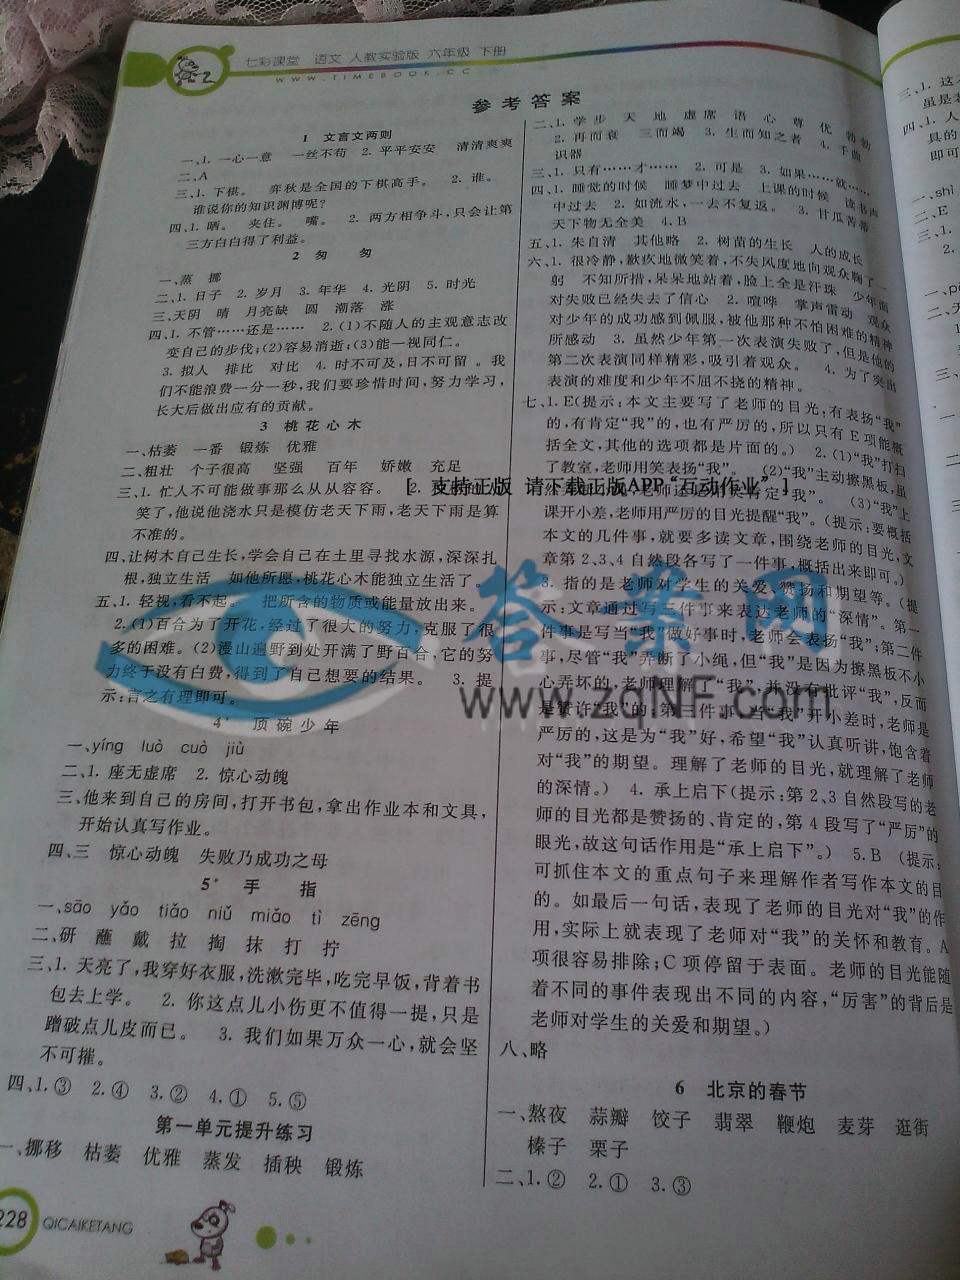 七彩课堂 语文 人教实验版 六年级 下册
WWW.TIMEBOOK.CC
参考答案
1 文言文两则
一、1. 一心一意 一丝不苟 2. 平平安安 清清爽爽
二、A
三、1. 下棋。 弈秋是全国的下棋高手。 2. 谁。
谁说你的知识渊博呢?
四、1. 晒。 夹住。 嘴。 2. 两方相争斗,只会让第
三方白白得了利益。
2 匆 匆
一、蒸 挪
二、1. 日子 2. 岁月 3. 年华 4. 光阴 5. 时光
三、天阴 晴 月亮缺 圆 潮落 涨
四、1. 不管……还是…… 2.(1)不随人的主观意志改
变自己的步伐;(2)容易消逝;(3)能一视同仁。
3. 拟人 排比 对比 4. 时不可及,日不可留。我
们不能浪费一分一秒,我们要珍惜时间,努力学习,
长大后做出应有的贡献。
3 桃花心木
一、枯萎 一番 锻炼 优雅
二、粗壮 个子很高 坚强 百年 娇嫩 充足
三、1. 忙人不可能做事那么从从容容。 2.
笑了,他说他浇水只是模仿老天下雨,老天下雨是算
不准的。
四、让树木自己生长,学会自己在土里寻找水源,深深扎
根,独立生活 如他所愿,桃花心木能独立生活了。
五、1. 轻视,看不起。 把所含的物质或能量放出来。
2.(1)百合为了开花,经过了很大的努力,克服了很
多的困难。(2)漫山遍野到处开满了野百合,它的努
力终于没有白费,得到了自己想要的结果。 3. 提
示:言之有理即可。
4* 顶碗少年
一、yíng luò cuò jiù
二、1. 座无虚席 2. 惊心动魄
三、他来到自己的房间,打开书包,拿出作业本和文具,
开始认真写作业。
四、三 惊心动魄 失败乃成功之母
5* 手 指
一、sāo yǎo tiǎo niǔ miǎo tì zēng
二、研 蘸 戴 拉 掏 抹 打 拧
三、1. 天亮了,我穿好衣服,洗漱完毕,吃完早饭,背着书
包去上学。 2. 你这点儿小伤更不值得一提,只是
蹭破点儿皮而已。 3. 我们如果万众一心,就会坚
不可摧。
四、1.③ 2.④ 3.② 4.① 5.⑤
第一单元提升练习
一、挪移 枯萎 优雅 蒸发 插秧 锻炼
228 QICAIKETANG
二、1. 学步 天 地 虚席 语 心 尊 优 勃勃
2. 再而衰 三而竭 3. 生而知之者 4. 千曲
识器
三、1. 只有……才…… 2. 可是 3. 如果……就……
四、1. 睡觉的时候 睡梦中过去 上课的时候 读书声
中过去 2. 如流水,一去不复返。 3. 甘瓜苦蒂
天下物无全美 4.B
五、1. 朱自清 其他略 2. 树苗的生长 人的成长
六、1. 很冷静,歉疚地微笑着,不失风度地向观众鞠了一
躬 不知所措,呆呆地站着,脸上全是汗珠 少年面
对失败已经失去了信心 2. 喧哗 掌声雷动 观众
对少年的成功感到佩服,被他那种不怕困难的精神
所感动 3. 虽然少年第一次表演失败了,但是他的
第二次表演同样精彩,吸引着观众。 4. 为了突出
表演的难度和少年不屈不挠的精神。
七、1.E(提示:本文主要写了老师的目光;有表扬“我”
的,有肯定“我”的,也有严厉的,所以只有E项能概
括全文,其他的选项都是片面的。) 2.(1)“我”打扫
了教室,老师用笑表扬“我”。 (2)“我”主动擦黑板,虽
[ 支持正版 请下载正版APP“互动作业” ]
(3)“我”上
课开小差,老师用严厉的目光提醒“我”。(提示:要概括
本文的几件事,就要多读文章,围绕老师的目光,文
章第2、3、4自然段各写了一件事,概括出来即可。)
3. 指的是老师对学生的关爱、赞扬和期望等。(提
示:文章通过写三件事来表达老师的“深情”。第一
件事是写当“我”做好事时,老师会表扬“我”;第二件
事,尽管“我”弄断了小绳,但“我”是因为擦黑板不小
心弄坏的,老师理解了“我”,并没有批评“我”,反而
是赞许“我”的;第三件事,当“我”开小差时,老师是
严厉的,这是为“我”好,希望“我”认真听讲,饱含着
对“我”的期望。理解了老师的目光,就理解了老师
的深情。) 4. 承上启下(提示:第2、3自然段写的老
师的目光都是赞扬的、肯定的,第4段写了“严厉”的
眼光,故这句话作用是“承上启下”。) 5.B (提示:
可抓住本文的重点句子来理解作者写作本文的目
的。如最后一句话,表现了老师的目光对“我”的作
用,实际上就表现了老师对“我”的关怀和教育。A
项很容易排除;C项停留于表面。老师的目光能随
着不同的事件表现出不同的内容,“厉害”的背后是
老师对学生的关爱和期望。)
八、略
6 北京的春节
一、熬夜 蒜瓣 饺子 翡翠 鞭炮 麦芽 逛街
榛子 栗子
二、1.② 2.① 3.③
答案网
www.zqNF.com